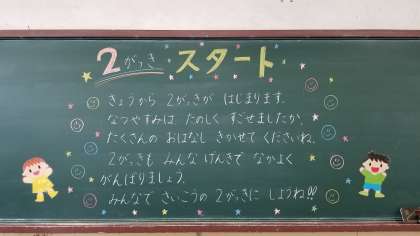 2がっき スタート
きょうから 2がっきが はじまります。
なつやすみは たのしく すごせましたか。
たくさんの おはなし きかせて くださいね。
2がっきも みんな げんきで なかよく
がんばりましょう。
みんなで さいこうの 2がっきに しようね!!